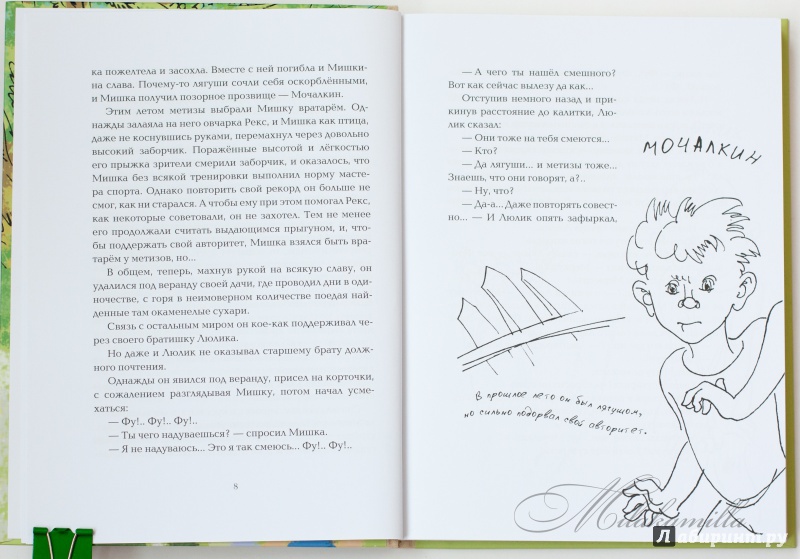 ка пожелтела и засохла. Вместе с ней погибла и Мишки-
на слава. Почему-то лягуши сочли себя оскорблёнными,
и Мишка получил позорное прозвище — Мочалкин.
Этим летом метизы выбрали Мишку вратарём. Од-
нажды залаяла на него овчарка Рекс, и Мишка как птица,
даже не коснувшись руками, перемахнул через довольно
высокий заборчик. Поражённые высотой и лёгкостью
его прыжка зрители смерили заборчик, и оказалось, что
Мишка без всякой тренировки выполнил норму масте-
ра спорта. Однако повторить свой рекорд он больше не
смог, как ни старался. А чтобы ему при этом помогал Рекс,
как некоторые советовали, он не захотел. Тем не менее
его продолжали считать выдающимся прыгуном, и, что-
бы поддержать свой авторитет, Мишка взялся быть вра-
тарём у метизов, но...
В общем, теперь, махнув рукой на всякую славу, он
удалился под веранду своей дачи, где проводил дни в оди-
ночестве, с горя в неимоверном количестве поедая най-
денные там окаменелые сухари.
Связь с остальным миром он кое-как поддерживал че-
рез своего братишку Люлика.
Но даже и Люлик не оказывал старшему брату долж-
ного почтения.
Однажды он явился под веранду, присел на корточки, с
сожалением разглядывая Мишку, потом начал усме-
хаться:
— Фу!.. Фу!.. Фу!..
— Ты чего надуваешься? — спросил Мишка.
— Я не надуваюсь... Это я так смеюсь... Фу!.. Фу!..
8
— А чего ты нашёл смешного?
Вот как сейчас вылезу да как...
Отступив немного назад и при-
кинув расстояние до калитки, Лю-
лик сказал:
— Они тоже на тебя смеются...
— Кто?
— Да лягуши... и метизы тоже...
Знаешь, что они говорят, а?..
— Ну, что?
— Да-а... Даже повторять совест-
но... — И Люлик опять зафыркал,
МОЧАЛКИН
В прошлое лето он был лягушом,
но сильно подорвал свой авторитет.
Milakamilla
Лабиринт.ру